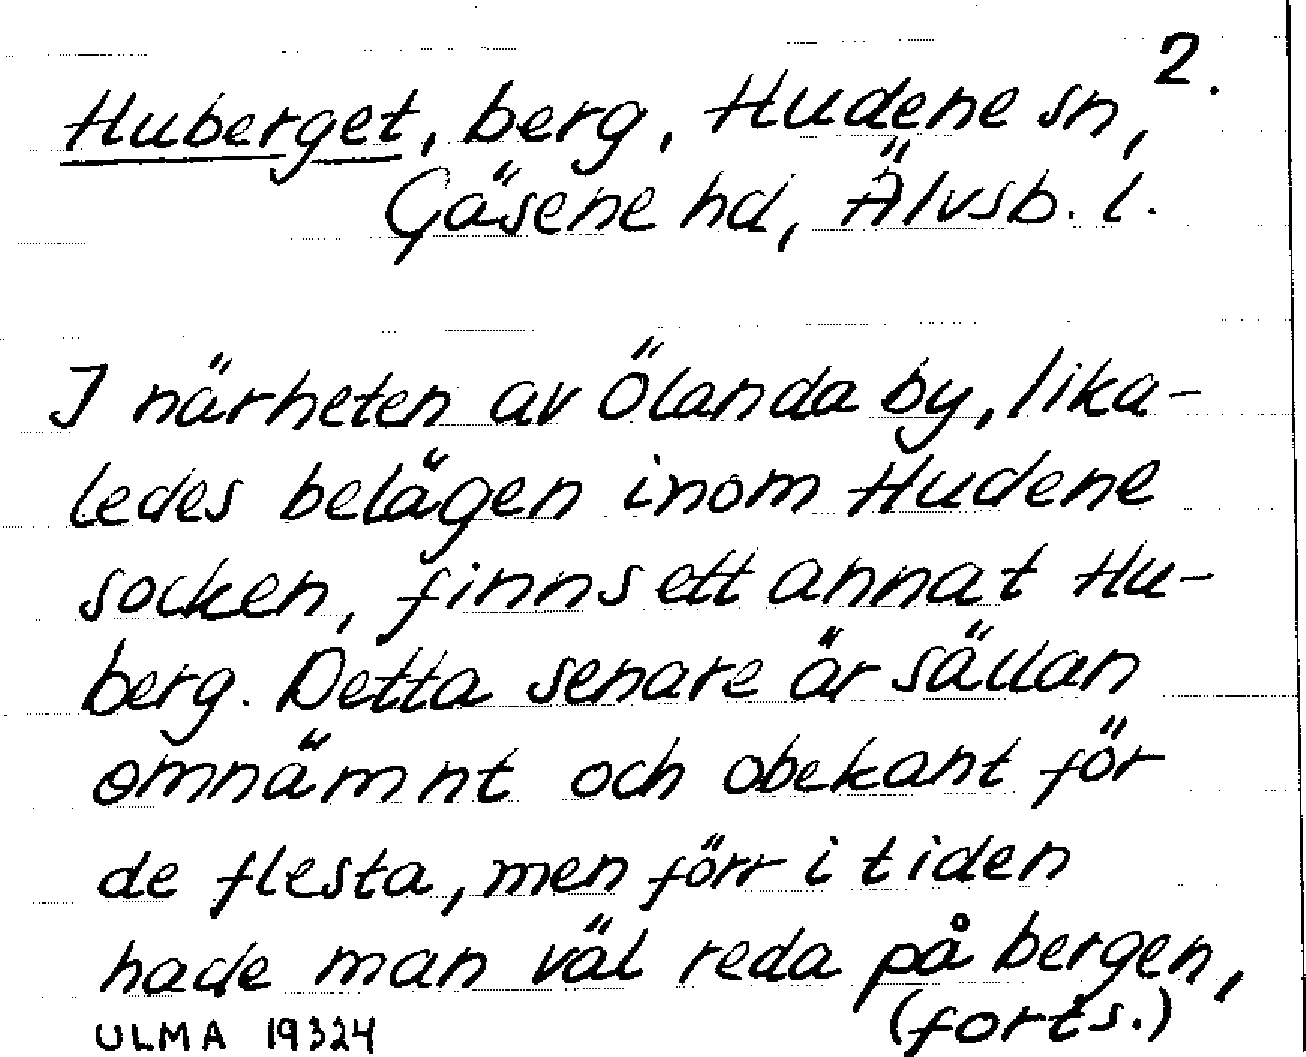 2.
Huberget, berg, Hudene sn,
Gäsene hd, Älvsb. l.
I närheten av Ölanda by, lika-
ledes belägen inom Hudene
socken, finns ett annat Hu-
berg. Detta senare är sällan
omnämnt och obekant för
de flesta, men förr i tiden
hade man väl reda på bergen,
(forts.)
ULMA 19324